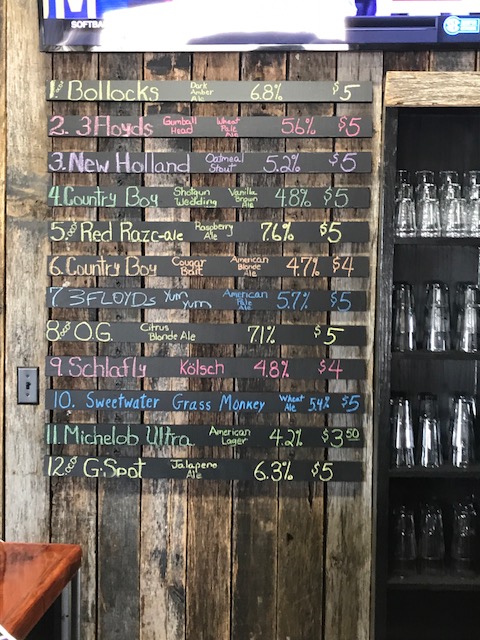 SOFTBA
1. Bollocks Dark Amber Ale 6.8% $5
2. 3 Floyds Gumball Head Wheat Pale Ale 5.6% $5
3. New Holland Oatmeal Stout 5.2% $5
4. Country Boy Shotgun Wedding Vanilla Brown Ale 4.8% $5
5. Red Raze-ale Raspberry Ale 7.6% $5
6. Country Boy Cougar Bait American Blonde Ale 4.7% $4
7. 3FLOYDs Yum Yum American Pale Ale 5.7% $5
8. O.G. Citrus Blonde Ale 7.1% $5
9. Schlafly Kölsch 4.8% $4
10. Sweetwater Grass Monkey Wheat Ale 5.4% $5
11. Michelob Ultra American Lager 4.2% $3 50
12. G-Spot Jalapeno Ale 6.3% $5